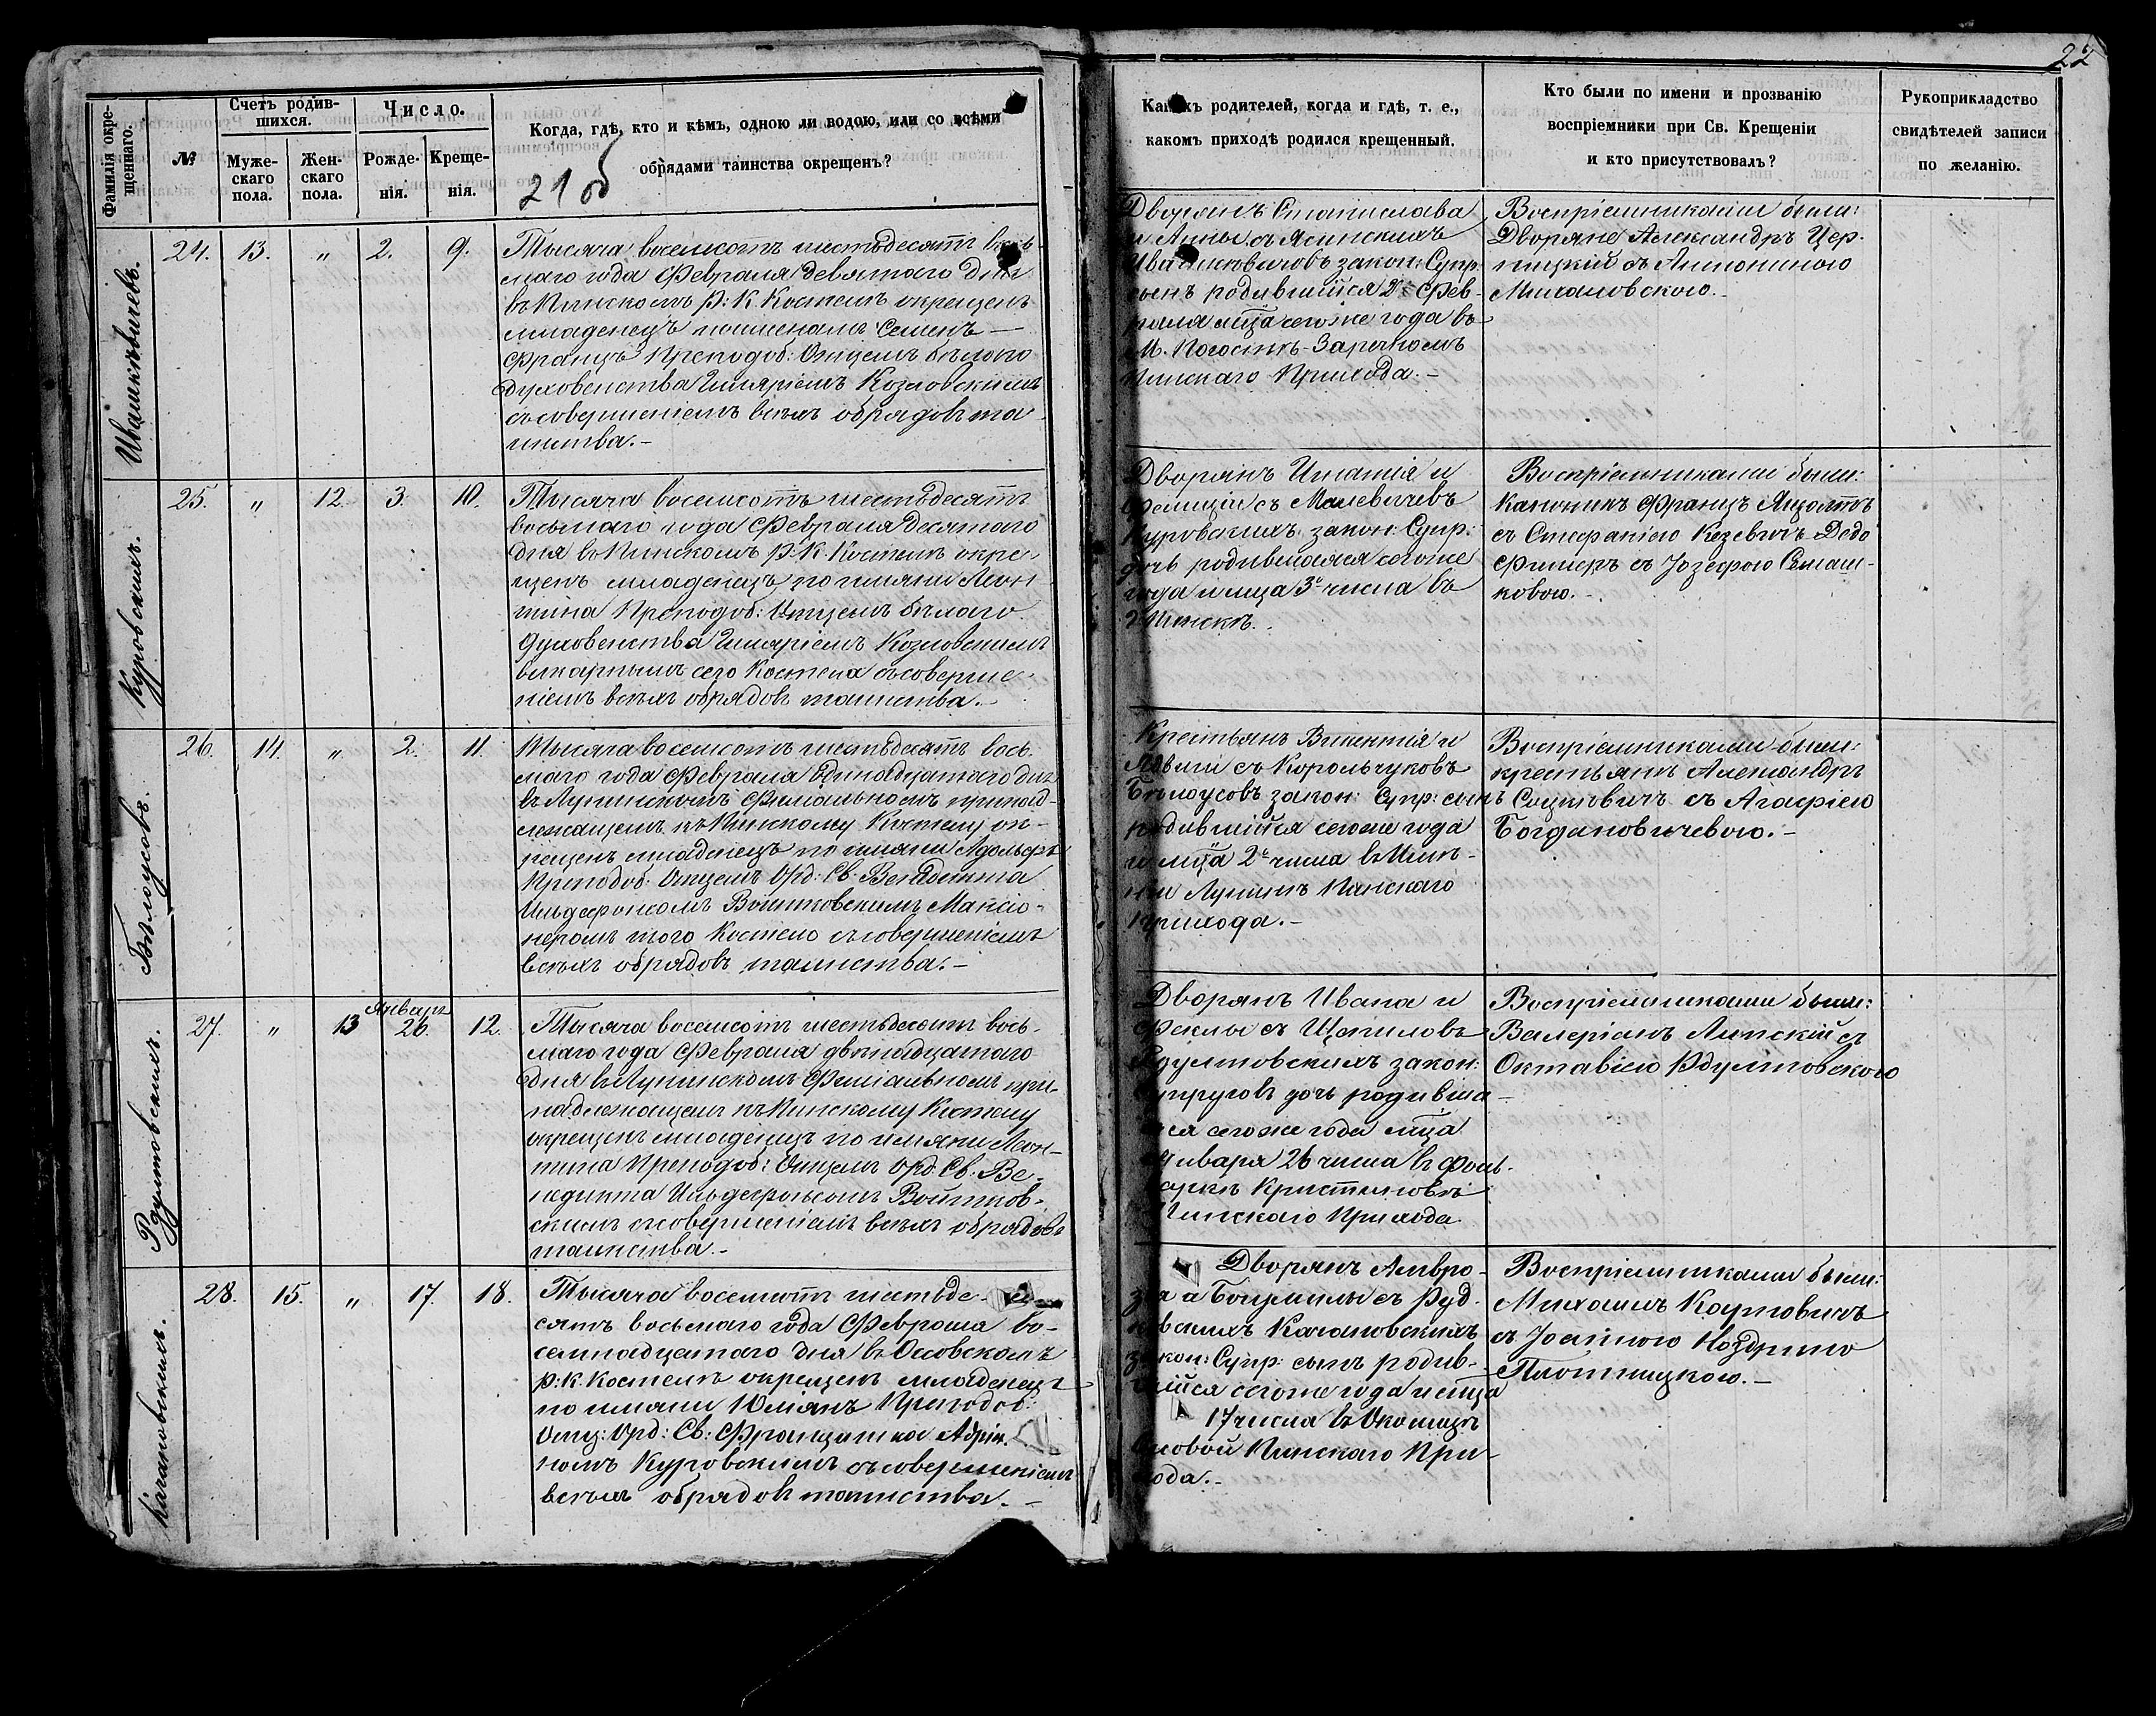 22
Фамилія окре-
щеннаго.
№
Счетъ родив-
шихся.
Муже-
скаго
пола.
Жен-
скаго
пола.
Число.
Рожде-
нія.
Креще-
нія.
Когда, гдѣ, кто и кѣмъ, одною ли водою, или со всѣми
обрядами таинства окрещенъ?
21 об
Ивашкѣвичевъ.
24. 13. „ 2. 9.
Тысяча восемсотъ шестьдесятъ вось-
маго года Февраля девятаго дня
въ Пинскомъ Р: К. Костелѣ окрещенъ
младенецъ поименамъ Семенъ —
Францъ Преподоб: Отцемъ бѣлаго
духовенства Иляріемъ Козловскимъ
съ совершеніемъ всѣхъ обрядовъ та-
инства. –
Куровскихъ.
25. „ 12. 3. 10.
Тысяча восемсотъ шестьдесятъ
восьмаго года Февраля десятаго
дня въ Пинскомъ Р. К. Костелѣ окре-
щенъ младенецъ по имяни Леон-
тина Преподоб: Отцемъ бѣлаго
духовенства Иляріемъ Козловскимъ
викарнымъ сего Костела съ соверше-
ніемъ всѣхъ обрядовъ таинства. –
Бѣлоусовъ.
26. 14. „ 2. 11.
Тысяча восемсотъ шестьдесятъ вось-
маго года Февраля Одинадцатаго дня
въ Лунинскомъ Филіальномъ принад-
лежащемъ къ Пинскому Костелу ок-
рещенъ младенецъ по имяни Адольфъ
Преподоб: Отцемъ Орд: Св: Венедикта
Ильдефонсомъ Войтковскимъ Мансіо-
неромъ того Костела съ совершеніемъ
всѣхъ обрядовъ таинства. –
Рдултовскихъ.
27. „ 13 Январь 26. 12.
Тысяча восемсотъ шестьдесятъ вось-
маго года Февраля двѣнадцатаго
дня въ Лунинскомъ Филіальномъ при-
надлежащемъ къ Пинскому Костелу
окрещенъ младенецъ по имяни Леон-
тина Преподоб: Отцемъ Орд. Св. Ве-
недикта Ильдефонсомъ Войтков-
скимъ съ совершеніемъ всѣхъ обрядовъ
таинства. –
Качановскихъ.
28. 15. „ 17. 18.
Тысяча восемсотъ шестьде-
сятъ восьмаго года Февраля во-
семнадцатаго дня въ Осовскомъ
Р: К. Костелѣ окрещенъ младенецъ
по имяни Юліянъ Преподоб:
Отц: Орд: Св: Францишка Адріа-
номъ Куровскимъ съ совершеніемъ
всѣхъ обрядовъ таинства. –
Какихъ родителей, когда и гдѣ, т. е.,
какомъ приходѣ родился крещенный.
Кто были по имени и прозванію
воспріемники при Св. Крещеніи
и кто присутствовалъ?
Рукоприкладство
свидѣтелей записи
по желанію.
Дворянъ Станислава
и Анны съ Ясинскихъ
Ивашкевичовъ закон: Супр:
сынъ родившійся 2го Фев-
раля мца сегоже года въ
М. Погостѣ-Зарѣчномъ
Пинскаго Прихода. –
Воспріемниками были:
Дворяне Александръ Цер-
пицкій съ Антониною
Михаловскою. –
Дворянъ Игнатія и
Фелиціи съ Малевичевъ
Куровскихъ закон: Супр:
дочь родившаяся сегоже
года и мца 3го числа въ
г. Пинскѣ.
Воспріемниками были:
Каноникъ Францъ Яцолтъ
съ Стефаніею
съ Іозефою
ковою. –
Крестьянъ Викентія и
съ Корольчуковъ
Бѣлоусовъ закон: Супр: сынъ
родившійся сегоже года
и мца 2го числа въ Имѣ-
ніи Лунинъ Пинскаго
прихода. –
Воспріемниками были:
крестьянъ Александръ
съ Агафіею
Богдановичевою. –
Дворянъ Ивана и
Феклы съ Щепиловъ
Рдултовскихъ закон:
Супруговъ дочь родивша-
яся сегоже года мца
Января 26 числа въ Фоль-
варкѣ Кристиновѣ
Пинскаго Прихода
Воспріемниками были:
Валеріанъ Липскій съ
Октавіею Рдултовскою
Дворянъ Амвро-
зія и Богумилы съ Руд-
ковскихъ Качановскихъ
закон: Супр: сынъ родив-
шійся сегоже года и мца
17 числа въ Околицѣ
Осовой Пинскаго При-
хода. –
Воспріемниками были:
Михаилъ Коутовичъ
съ Іоанною Ноздрино
Плотницкою. –